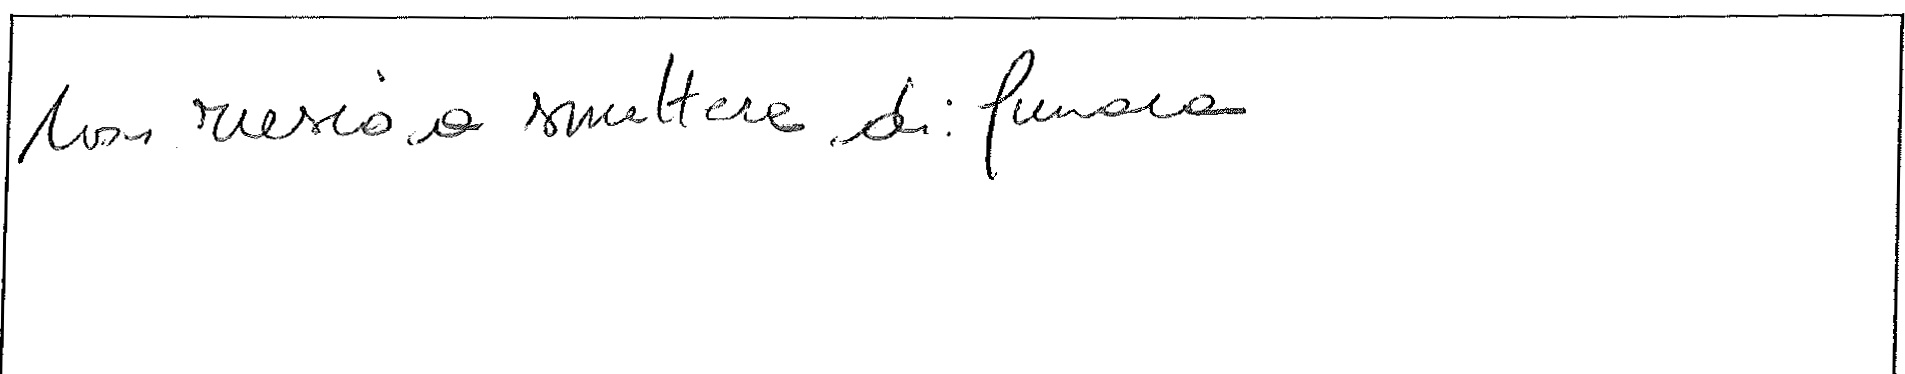 Non riescio a smettere di fumare